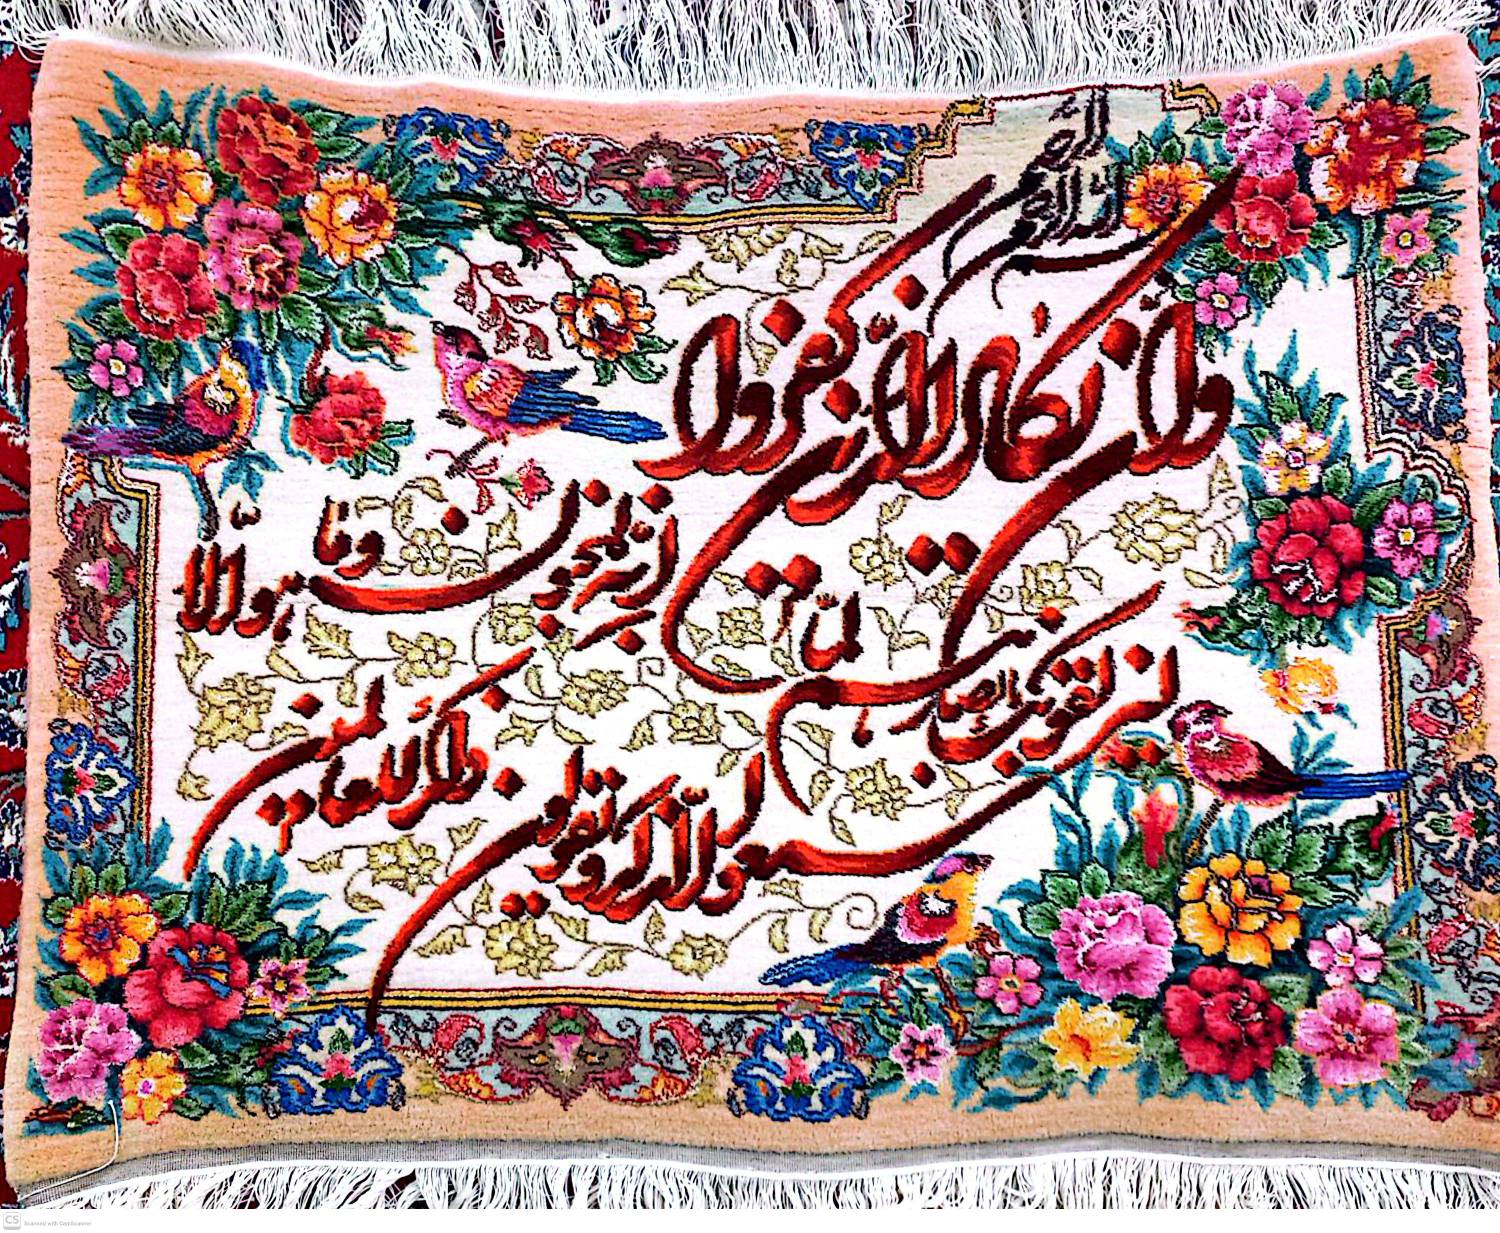 بسم الله الرحمن الرحیم
وان یکاد الذین کفروا
لیزلقونک بابصارهم لما
سمعوا الذکر و یقولون
انه لمجنون و ما هو الا
ذکر للعالمین
CS Scanned with CamScanner